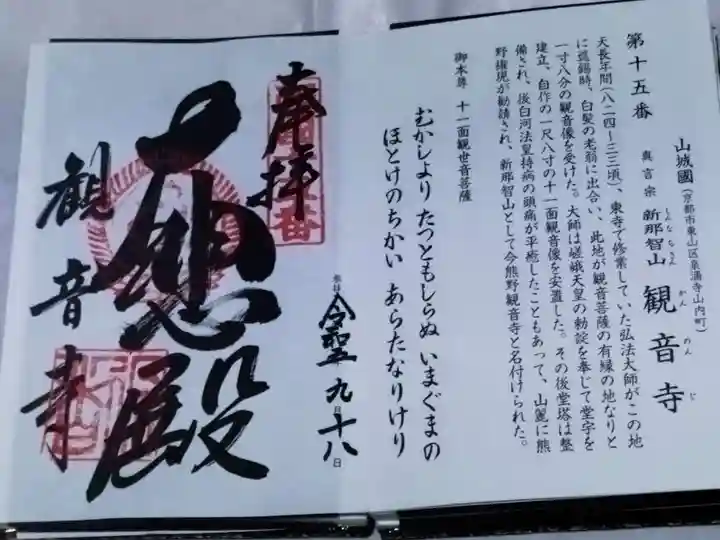 第十五番
山城國(京都市東山区泉涌寺山内町)
真言宗 新那智山 観音寺
しんなちさん かんのんじ
天長年間(八二四〜三三頃)、東寺で修業していた弘法大師がこの地
に巡錫時、白髪の老翁に出合い、此地が観音菩薩の有縁の地なりと
一寸八分の観音像を受けた。大師は嵯峨天皇の勅詔を奉じて堂宇を
建立、自作の一尺八寸の十一面観音像を安置した。その後堂塔は整
備され、後白河法皇持病の頭痛が平癒したこともあって、山麓に熊
野権現が勧請され、新那智山として今熊野観音寺と名付けられた。
御本尊 十一面観世音菩薩
むかしより たつともしらぬ いまぐまの
ほとけのちかい あらたなりけり
奉拝
九月十八日
大悲殿
観音寺